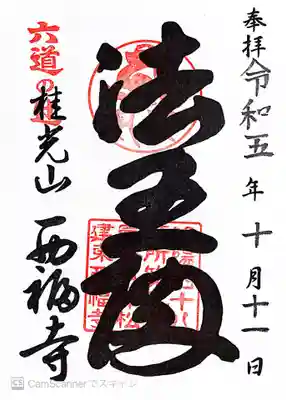 奉拝令和五年十月十一日
法王
六道の辻
桂光山 西福寺
CS CamScannerでスキャン